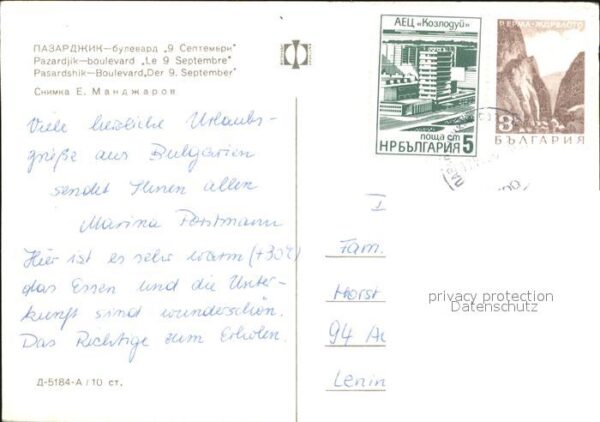 ПАЗАРДЖИК—булевард „9 Септември"
Pazardjik—boulevard „Le 9 Septembre"
Pasardshik—Boulevard „Der 9. September"
Снимка Е. Манджаров
Viele herzliche Urlaubs-
grüße aus Bulgarien
sendet Ihnen allen
Marina Forstmann
Hier ist es sehr warm (+30°)
das Essen und die Unter-
kunft sind wunderschön.
Das Richtige zum Erholen.
Д-5184-А / 10 ст.
АЕЦ „Козлодуй"
поща ст
НРБЪЛГАРИЯ 5
Р. ЕРМА-ЖДРЕЛОТО
8
БЪЛГАРИЯ
Fam.
Horst
94 Au
Lenin
privacy protection
Datenschutz